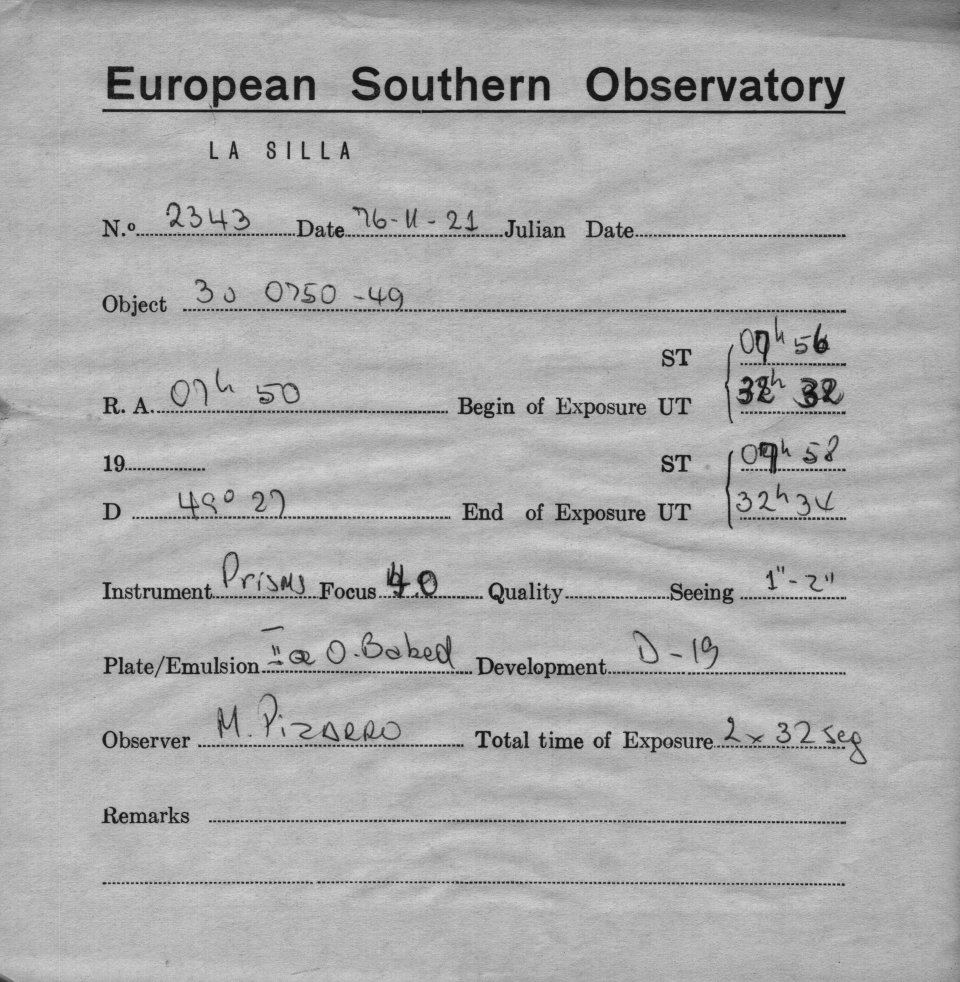 European Southern Observatory
LA SILLA
N.º 2343 Date 76-11-21 Julian Date
Object 30 0750-49
ST 07h 56
R. A. 07h 50 Begin of Exposure UT 32h 32
19 ST 07h 58
D 49º 27 End of Exposure UT 32h 34
Instrument Prisms Focus 4.0 Quality Seeing 1"-2"
Plate/Emulsion IIa O-Baked Development D-19
Observer M. Pizarro Total time of Exposure 2x32 seg
Remarks